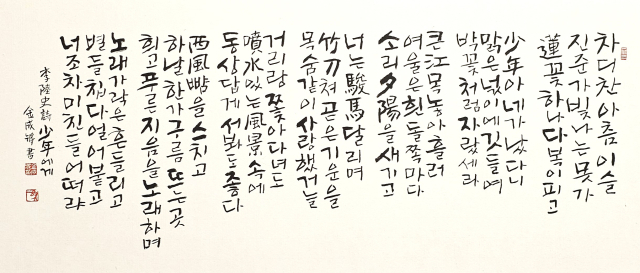 차디찬 아츰이슬
진준가 빛나는 못가
蓮꽃 하나 다복이 피고
少年아 네가 났다니
맑은 넋이에 깃들여
박꽃처럼 자랐세라
큰江 목놓아 흘러
여울은 흰 돌쪽마다
소리 夕陽을 새기고
너는 駿馬 달리며
竹刀 져 곧은 기운을
목숨같이 사랑했거늘
거리랑 쫓아다녀도
噴水있는 風景속에
동상답게 서봐도 좋다
西風 뺨을 스치고
하날 한가 구름 뜨는 곳
희고 푸른 지음을 노래하며
노래가락은 흔들리고
별들 칩다 얼어붙고
너조차 미친들 어떠랴
李陸史 詩 少年에게
金成 書